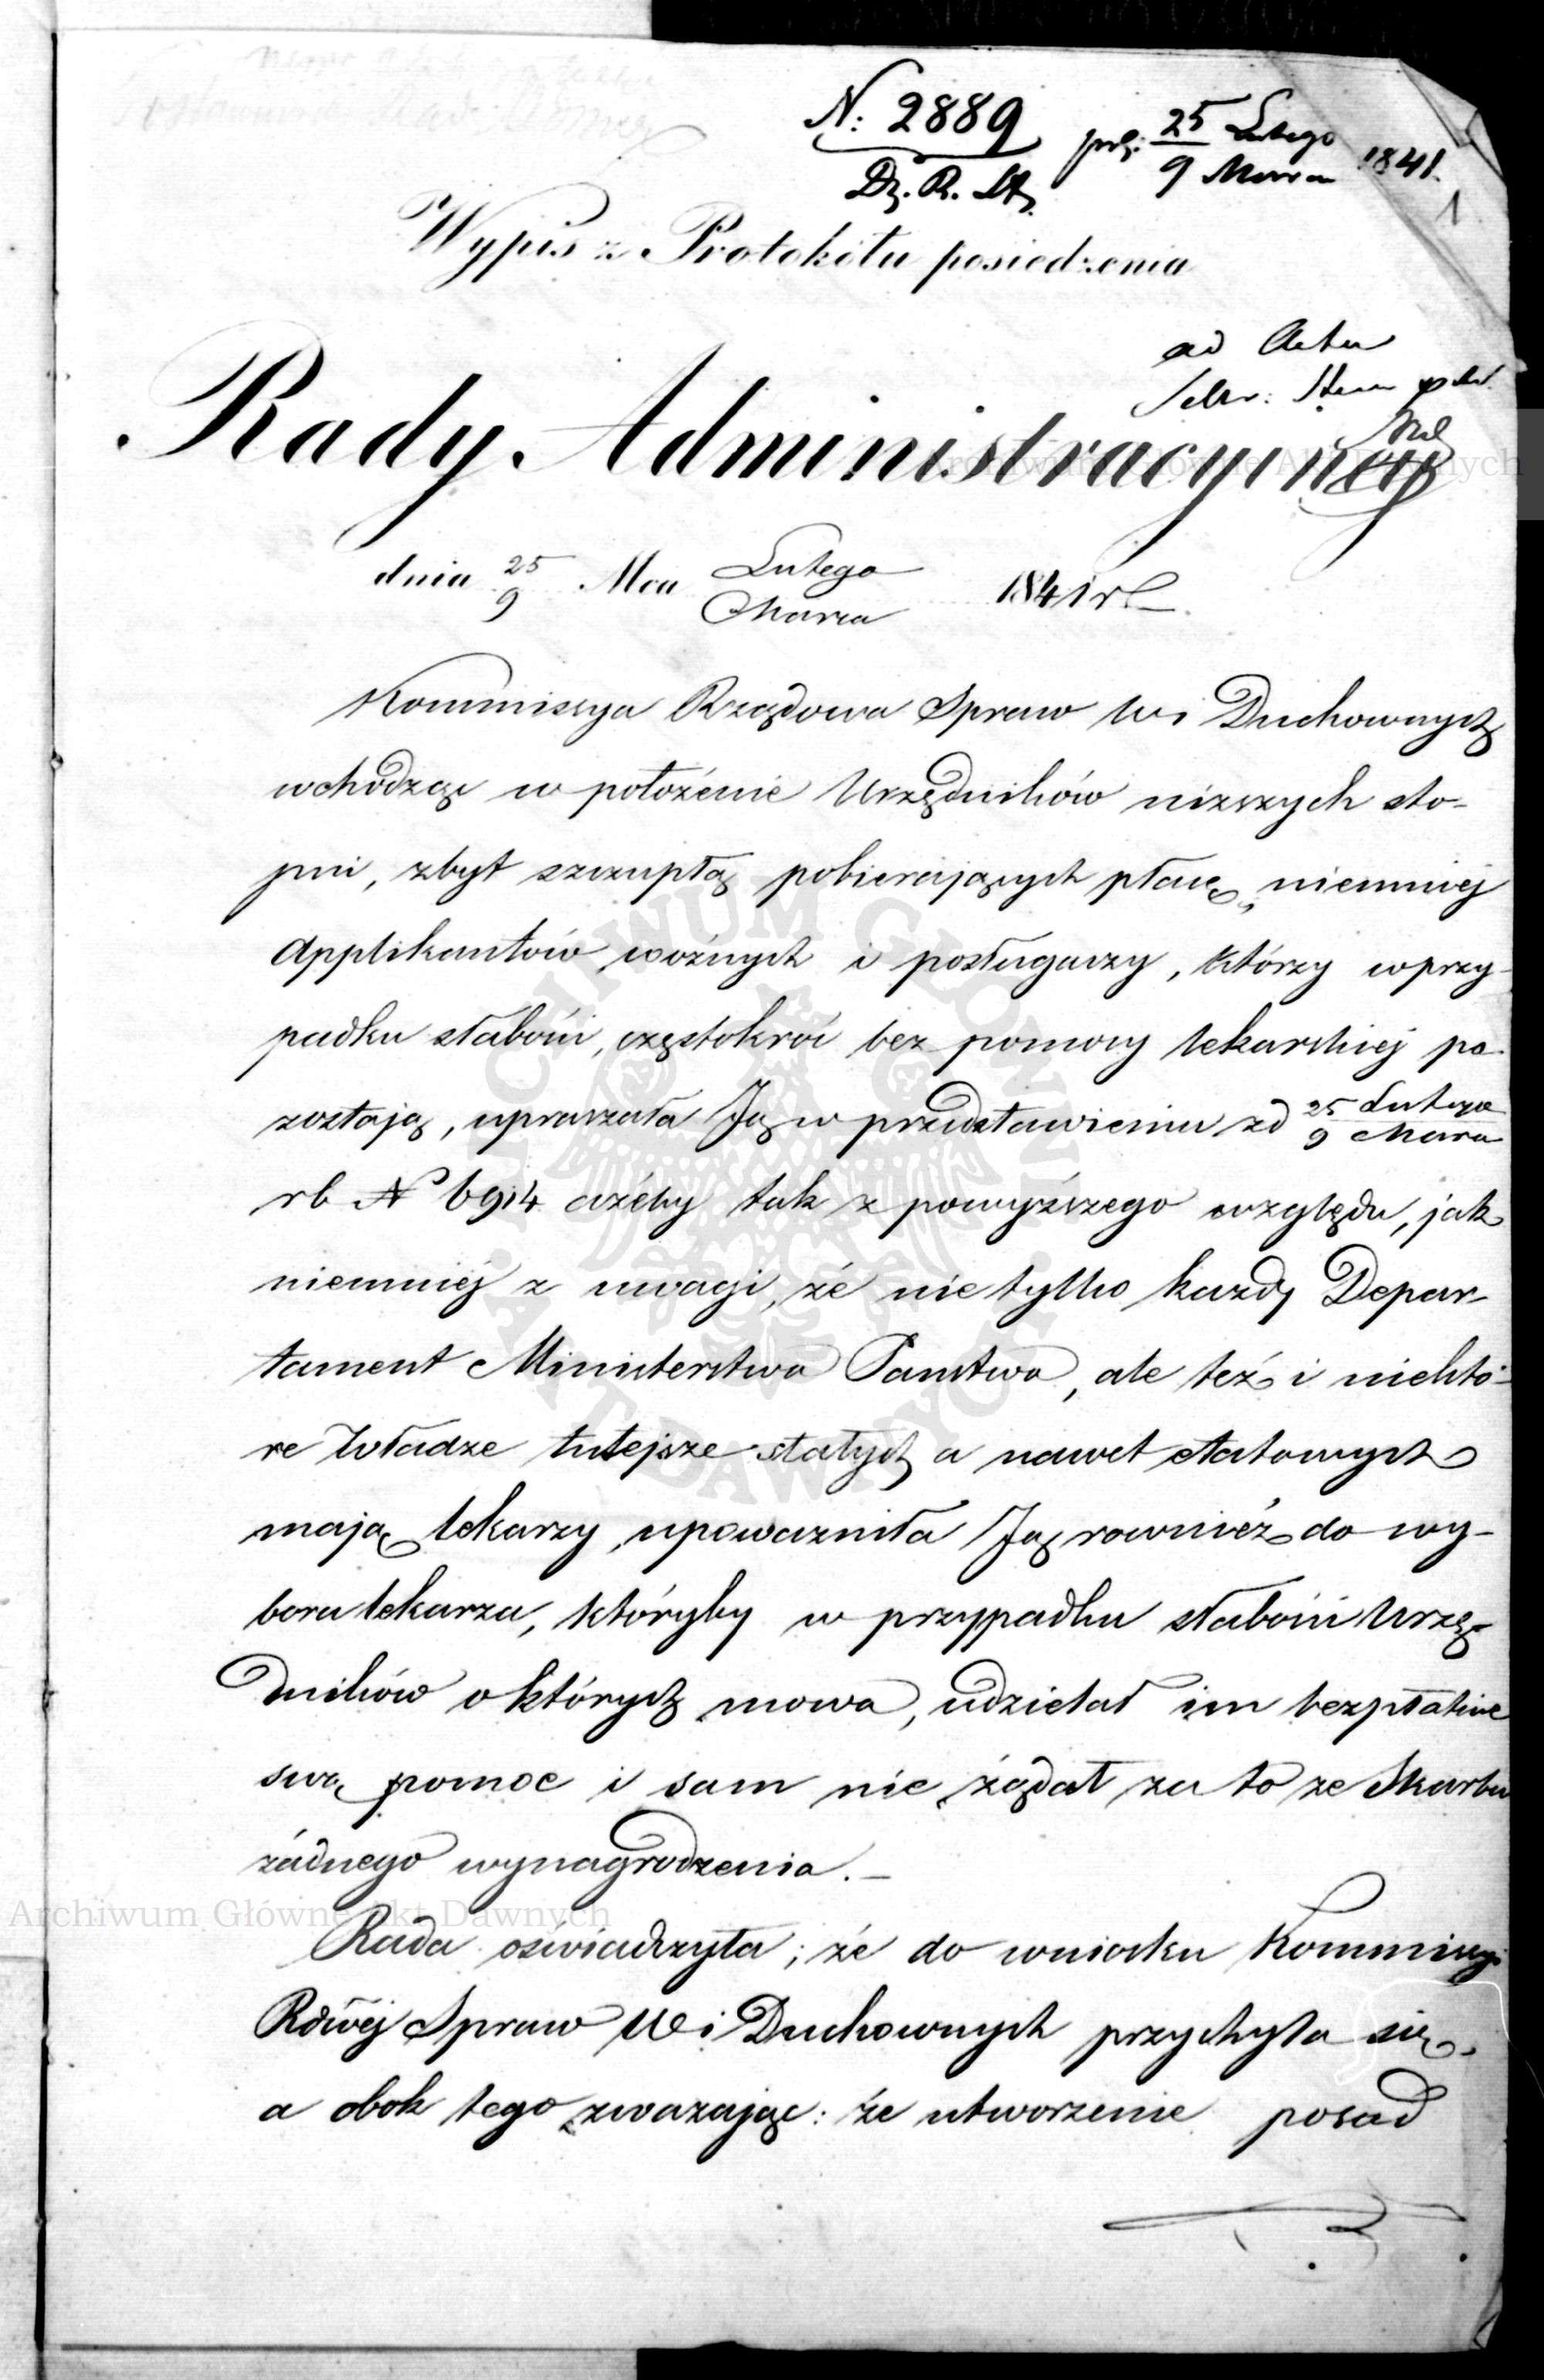 N: 2889
Dz. R. St.
25 Lutego
9 Marca 1841.
1
Wypis z Protokółu posiedzenia
ad Acta
Rady Administracyjnej
Archiwum Główne Akt Dawnych
dnia 25/9 Mca Lutego/Marca 1841 rb
Kommissya Rządowa Spraw W i Duchownych
wchodząc w położénie Urzędników niższych sto-
pni, zbyt szczupłą pobierających płacę, niemniéj
Applikantów woźnych i posługaczy, którzy w przy-
padku słabości, częstokroć bez pomocy lekarskiéj po-
zostają, upraszała Ją w przedstawieniu z d 25/9 Lutego/Marca
rb N 6914 ażéby tak z powyższego względu, jak
niemniéj z uwagi, że nie tylko każdy Depar-
tament Ministerstwa Państwa, ale też i niektó-
re Władze tutejsze stałych a nawet etatowych
mają lekarzy, upoważniła Ją równiéż do wy-
boru lekarza, któryby w przypadku słabości Urzę-
dników o których mowa, udzielał im bezpłatnie
swą pomoc i sam nie żądał za to ze Skarbu
żádnego wynagrodzenia.—
Archiwum Główne Akt Dawnych
Rada oświadczyła; że do wniosku Kommissyi
Rdwéj Spraw W i Duchownych przychyla się,
a obok tego zważając: że utworzenie posad
ARCHIWUM GŁÓWNE AKT DAWNYCH